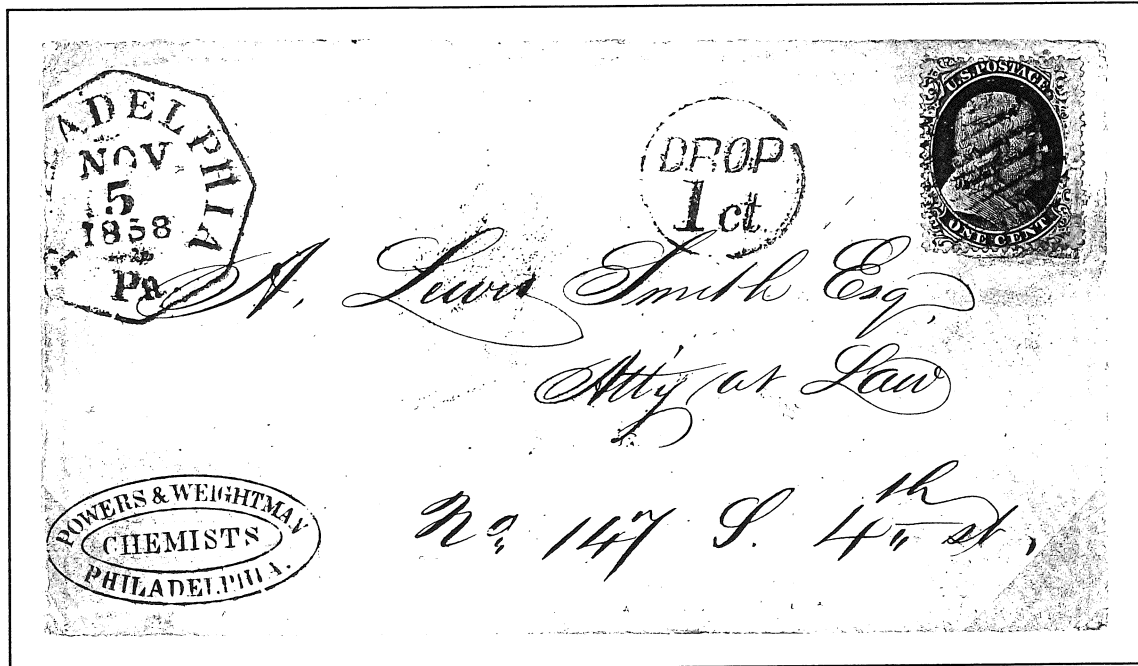 PHILADELPHIA
NOV
5
1858
Pa
DROP
1 ct
U.S. POSTAGE
ONE CENT
A. Lewis Smith Esq.
Atty at Law
No. 147 S. 4th st,
POWERS & WEIGHTMAN
CHEMISTS
PHILADELPHIA.